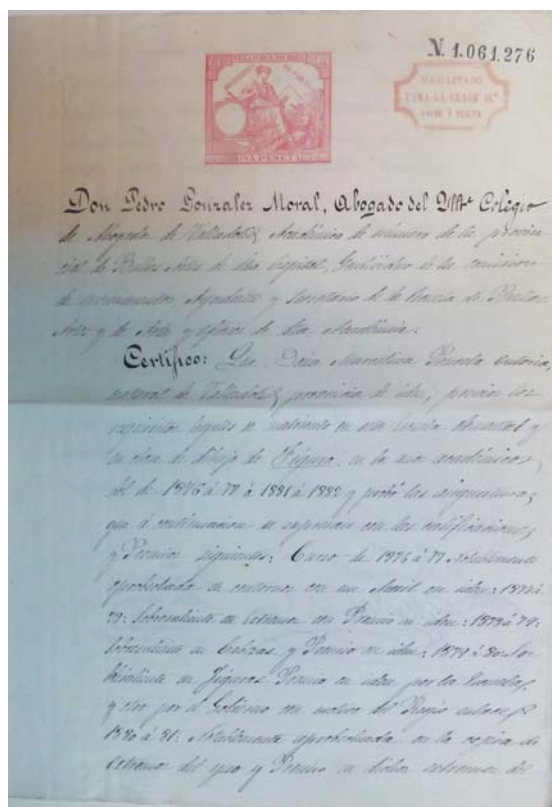 N. 1.061.276
HABILITADO
PARA LA CLASE
UNA PESETA
Don Pedro Gonzalez Moral, Abogado del Ille Colegio
de Abogados de Valladolid, Académico de número de la provin
cial de Bellas Artes de dha Capital, de la comision
de monumentos, Ayudante y Secretario de la Escuela de Bellas
Artes y de Artes y oficios de dha Academia.
Certifico: Que Doña Marcelina Poncela
natural de Valladolid, provincia de idem, previos los
requisitos legales se matriculó en esta Escuela
en clase de dibujo de Figura, en los años académicos
del de 1876 á 77 á 1881 á 1882 y probó las asignaturas
que á continuacion se expresan con las calificaciones
y Premios siguientes: Curso de 1876 á 77 Notablemente
aprobechada en contornos con un Accesit en idem: 187
79: Sobresaliente en Estremos con Premio en idem: 1878 á 79:
Sobresaliente en Cabezas y Premio en idem: 1879 á 80: So
bresaliente en Figuras Premio en idem por la Escuela,
y otro por el Gobierno con motivo del Regio enlace,
1880 á 81: Notablemente aprobechada en la copia de
Estremos del yeso y Premio en dichos estremos del